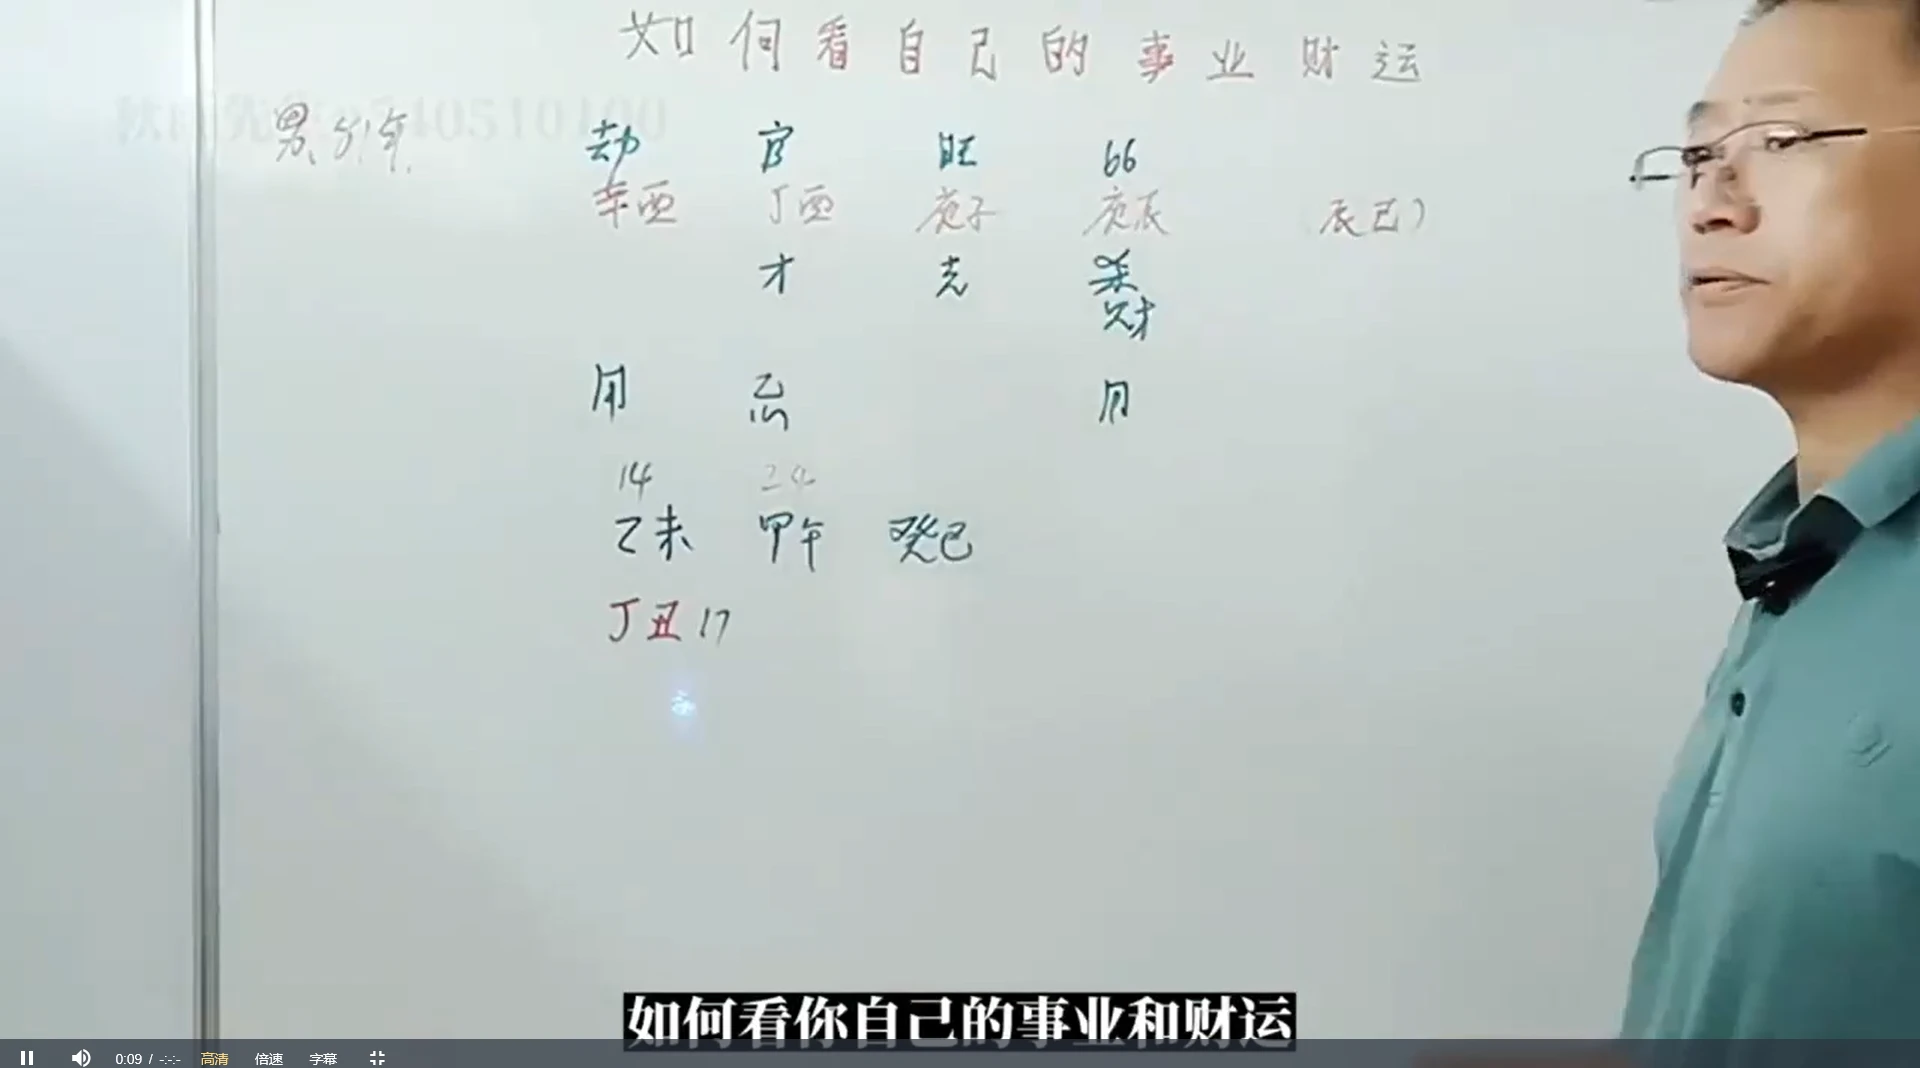 如何看自己的事业财运
男、81年.
劫 官 旺 66
辛酉 丁酉 庚子 庚辰 (辰巳)
才 杀
财
用 忌 用
14 24
乙未 甲午 癸巳
丁丑 17
如何看你自己的事业和财运
0:09 / -:-:- 高清 倍速 字幕